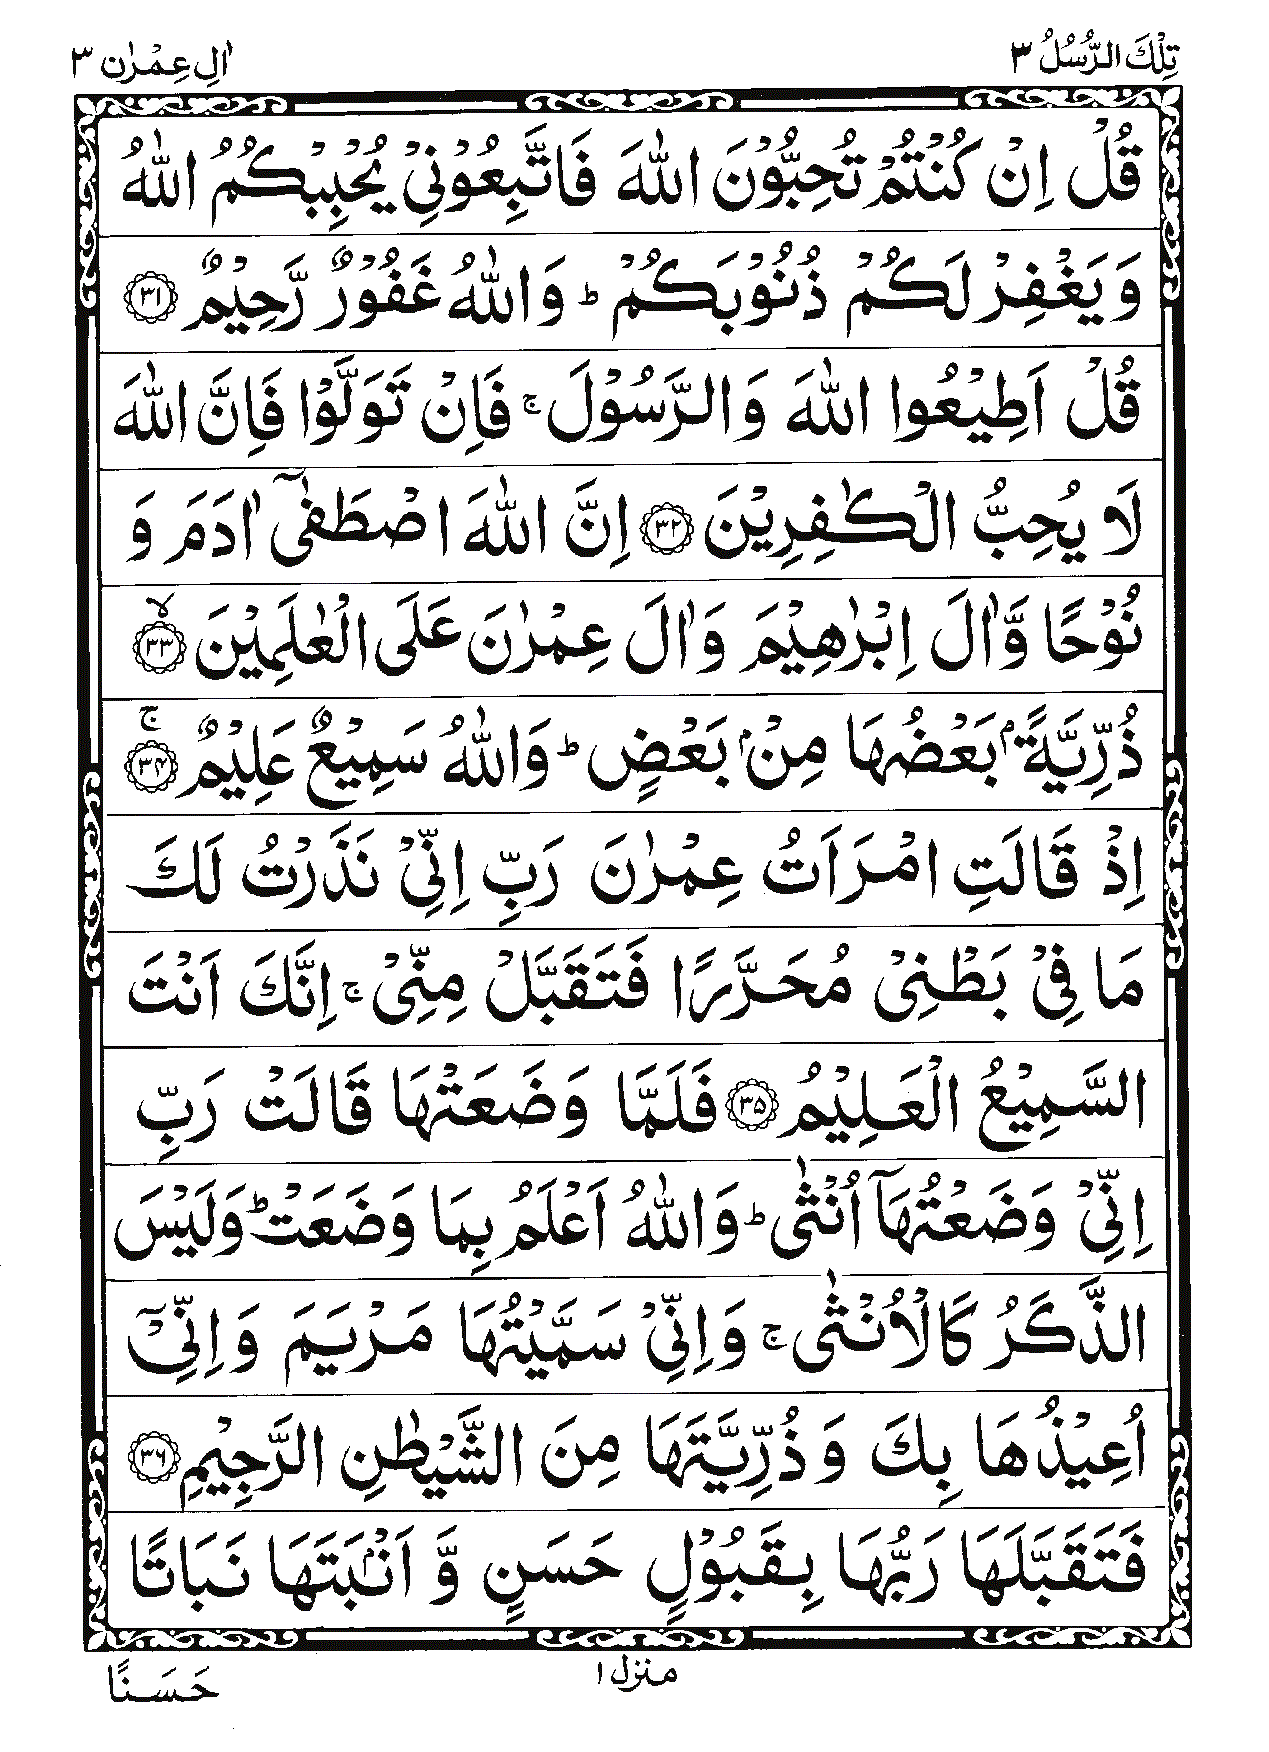 تِلْكَ الرُّسُلُ ٣
اٰلِ عِمْرٰن ٣
قُلْ اِنْ كُنْتُمْ تُحِبُّوْنَ اللّٰهَ فَاتَّبِعُوْنِيْ يُحْبِبْكُمُ اللّٰهُ
وَيَغْفِرْ لَكُمْ ذُنُوْبَكُمْ ؕ وَاللّٰهُ غَفُوْرٌ رَّحِيْمٌ ۝٣١
قُلْ اَطِيْعُوا اللّٰهَ وَالرَّسُوْلَ ۚ فَاِنْ تَوَلَّوْا فَاِنَّ اللّٰهَ
لَا يُحِبُّ الْكٰفِرِيْنَ ۝٣٢ اِنَّ اللّٰهَ اصْطَفٰۤى اٰدَمَ وَ
نُوْحًا وَّاٰلَ اِبْرٰهِيْمَ وَاٰلَ عِمْرٰنَ عَلَى الْعٰلَمِيْنَ ۙ۝٣٣
ذُرِّيَّةًۢ بَعْضُهَا مِنْۢ بَعْضٍ ؕ وَاللّٰهُ سَمِيْعٌ عَلِيْمٌ ۚ۝٣٤
اِذْ قَالَتِ امْرَاَتُ عِمْرٰنَ رَبِّ اِنِّيْ نَذَرْتُ لَكَ
مَا فِيْ بَطْنِيْ مُحَرَّرًا فَتَقَبَّلْ مِنِّيْ ۚ اِنَّكَ اَنْتَ
السَّمِيْعُ الْعَلِيْمُ ۝٣٥ فَلَمَّا وَضَعَتْهَا قَالَتْ رَبِّ
اِنِّيْ وَضَعْتُهَاۤ اُنْثٰى ؕ وَاللّٰهُ اَعْلَمُ بِمَا وَضَعَتْ ؕ وَلَيْسَ
الذَّكَرُ كَالْاُنْثٰى ۚ وَاِنِّيْ سَمَّيْتُهَا مَرْيَمَ وَاِنِّيْۤ
اُعِيْذُهَا بِكَ وَذُرِّيَّتَهَا مِنَ الشَّيْطٰنِ الرَّجِيْمِ ۝٣٦
فَتَقَبَّلَهَا رَبُّهَا بِقَبُوْلٍ حَسَنٍ وَّ اَنْۢبَتَهَا نَبَاتًا
منزل ١
حَسَنًا